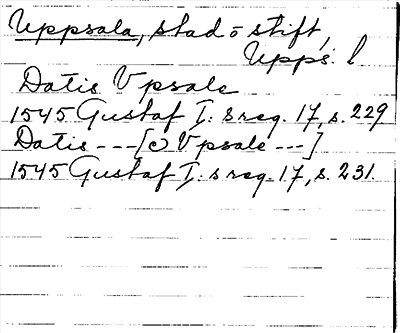 Uppsala, stad o stift,
Upps. l
Datis Vpsale
1545 Gustaf I: s reg. 17, s. 229
Datis --- [c) Vpsale ---]
1545 Gustaf I: s reg. 17, s. 231.